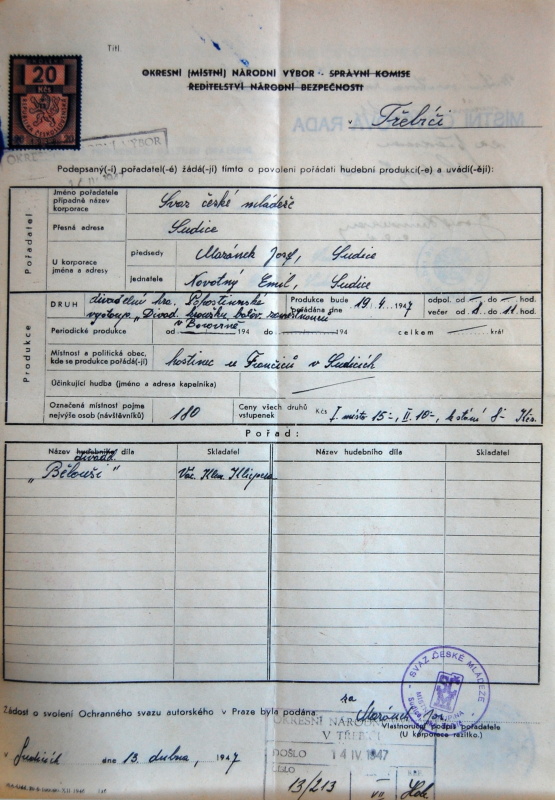 Titl.
20
Kčs
OKRESNÍ (MÍSTNÍ) NÁRODNÍ VÝBOR - SPRÁVNÍ KOMISE
ŘEDITELSTVÍ NÁRODNÍ BEZPEČNOSTI
v Třebíči
Podepsaný(-í) pořadatel(-é) žádá(-jí) tímto o povolení pořádati hudební produkci(-e) a uvádí(-ějí):
Pořadatel
Jméno pořadatele případně název korporace
Svaz české mládeže
Přesná adresa
Sudice
U korporace jména a adresy
předsedy
Maránek Josef, Sudice
jednatele
Novotný Emil, Sudice
Produkce
DRUH divadelní hra. Pohostinské
vystoup. "Divad. kroužku
v Borovině
Produkce bude pořádána dne 19. 4. 1947
odpol. od — do — hod.
večer od 8. do 11. hod.
Periodické produkce od 194 do 194 celkem krát
Místnost a politická obec, kde se produkce pořádá(-jí)
hostinec u Frančiců v Sudicích
Účinkující hudba (jméno a adresa kapelníka)
Označená místnost pojme nejvýše osob (návštěvníků)
180
Ceny všech druhů vstupenek Kčs I. místo 15-, II. 10-, k stání 8- Kčs.
Pořad:
Název hudebního díla
divadel.
Skladatel
Název hudebního díla
Skladatel
"Bělouši"
Vác. Klim. Klicpera
SVAZ ČESKÉ MLÁDEŽE
Žádost o svolení Ochranného svazu autorského v Praze byla podána.
za Maránek Jos.
Vlastnoruční podpis pořadatele
(U korporace razítko.)
OKRESNÍ NÁRODNÍ
V TŘEBÍČI
DOŠLO 14 IV 1947
ČÍSLO
13/213
VII
v Sudicích dne 13. dubna, 1947